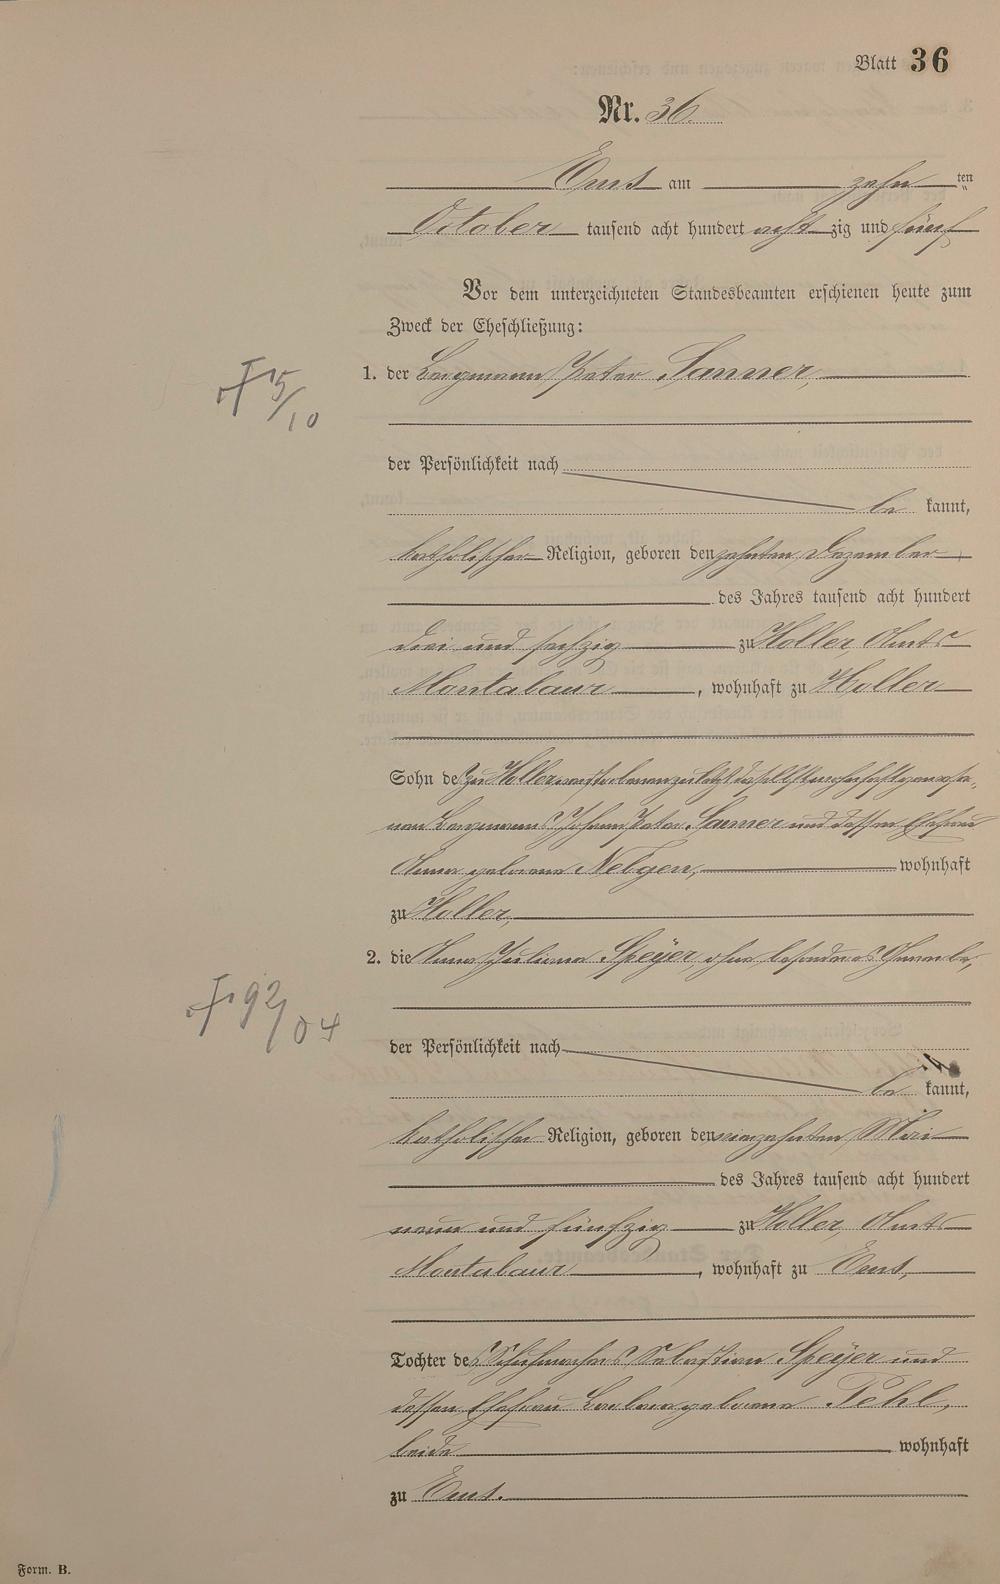 Blatt 36
Nr. 36.
Ems am zehn ten
October tausend acht hundert acht zig und fünf
Vor dem unterzeichneten Standesbeamten erschienen heute zum
Zweck der Eheschließung:
1. der Bergmann Peter Sanner,
5/10
der Persönlichkeit nach
be kannt,
katholischer Religion, geboren den zehnten Dezember
des Jahres tausend acht hundert
drei und sechzig zu Holler, Amts
Montabaur, wohnhaft zu Holler
Sohn des zu Holler verstorbenen zuletzt daselbst wohnhaft gewese-
nen Bergmanns Johann Peter Sanner und dessen Ehefrau
Anna geborene Nebgen, wohnhaft
zu Holler,
2. die Anna Juliana Speÿer, ohne besonderes Gewerbe,
92/04
der Persönlichkeit nach
be kannt,
katholischer Religion, geboren den neunzehnten Mai
des Jahres tausend acht hundert
neun und fünfzig zu Holler, Amts
Montabaur, wohnhaft zu Ems,
Tochter des Schuhmachers Sebastian Speÿer und
dessen Ehefrau Barbara geborene Pehl,
beide wohnhaft
zu Ems.
Form. B.